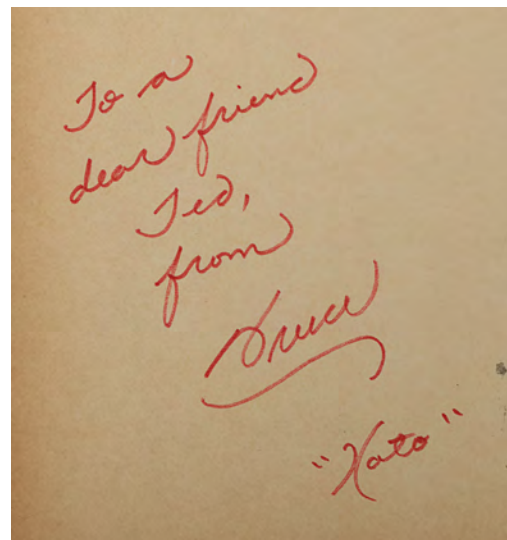 To a
dear friend
Ted,
from
Bruce
"Kato"